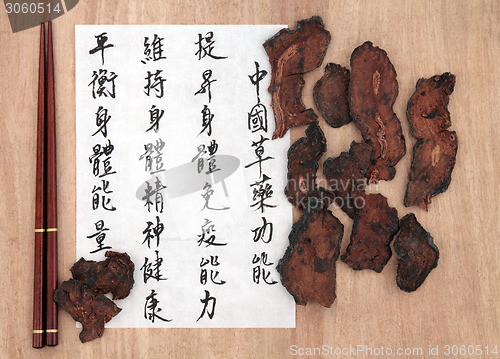 中國草藥功能
提昇身體免疫能力
維持身體精神健康
平衡身體能量
2060514
© marilyna - stockfresh